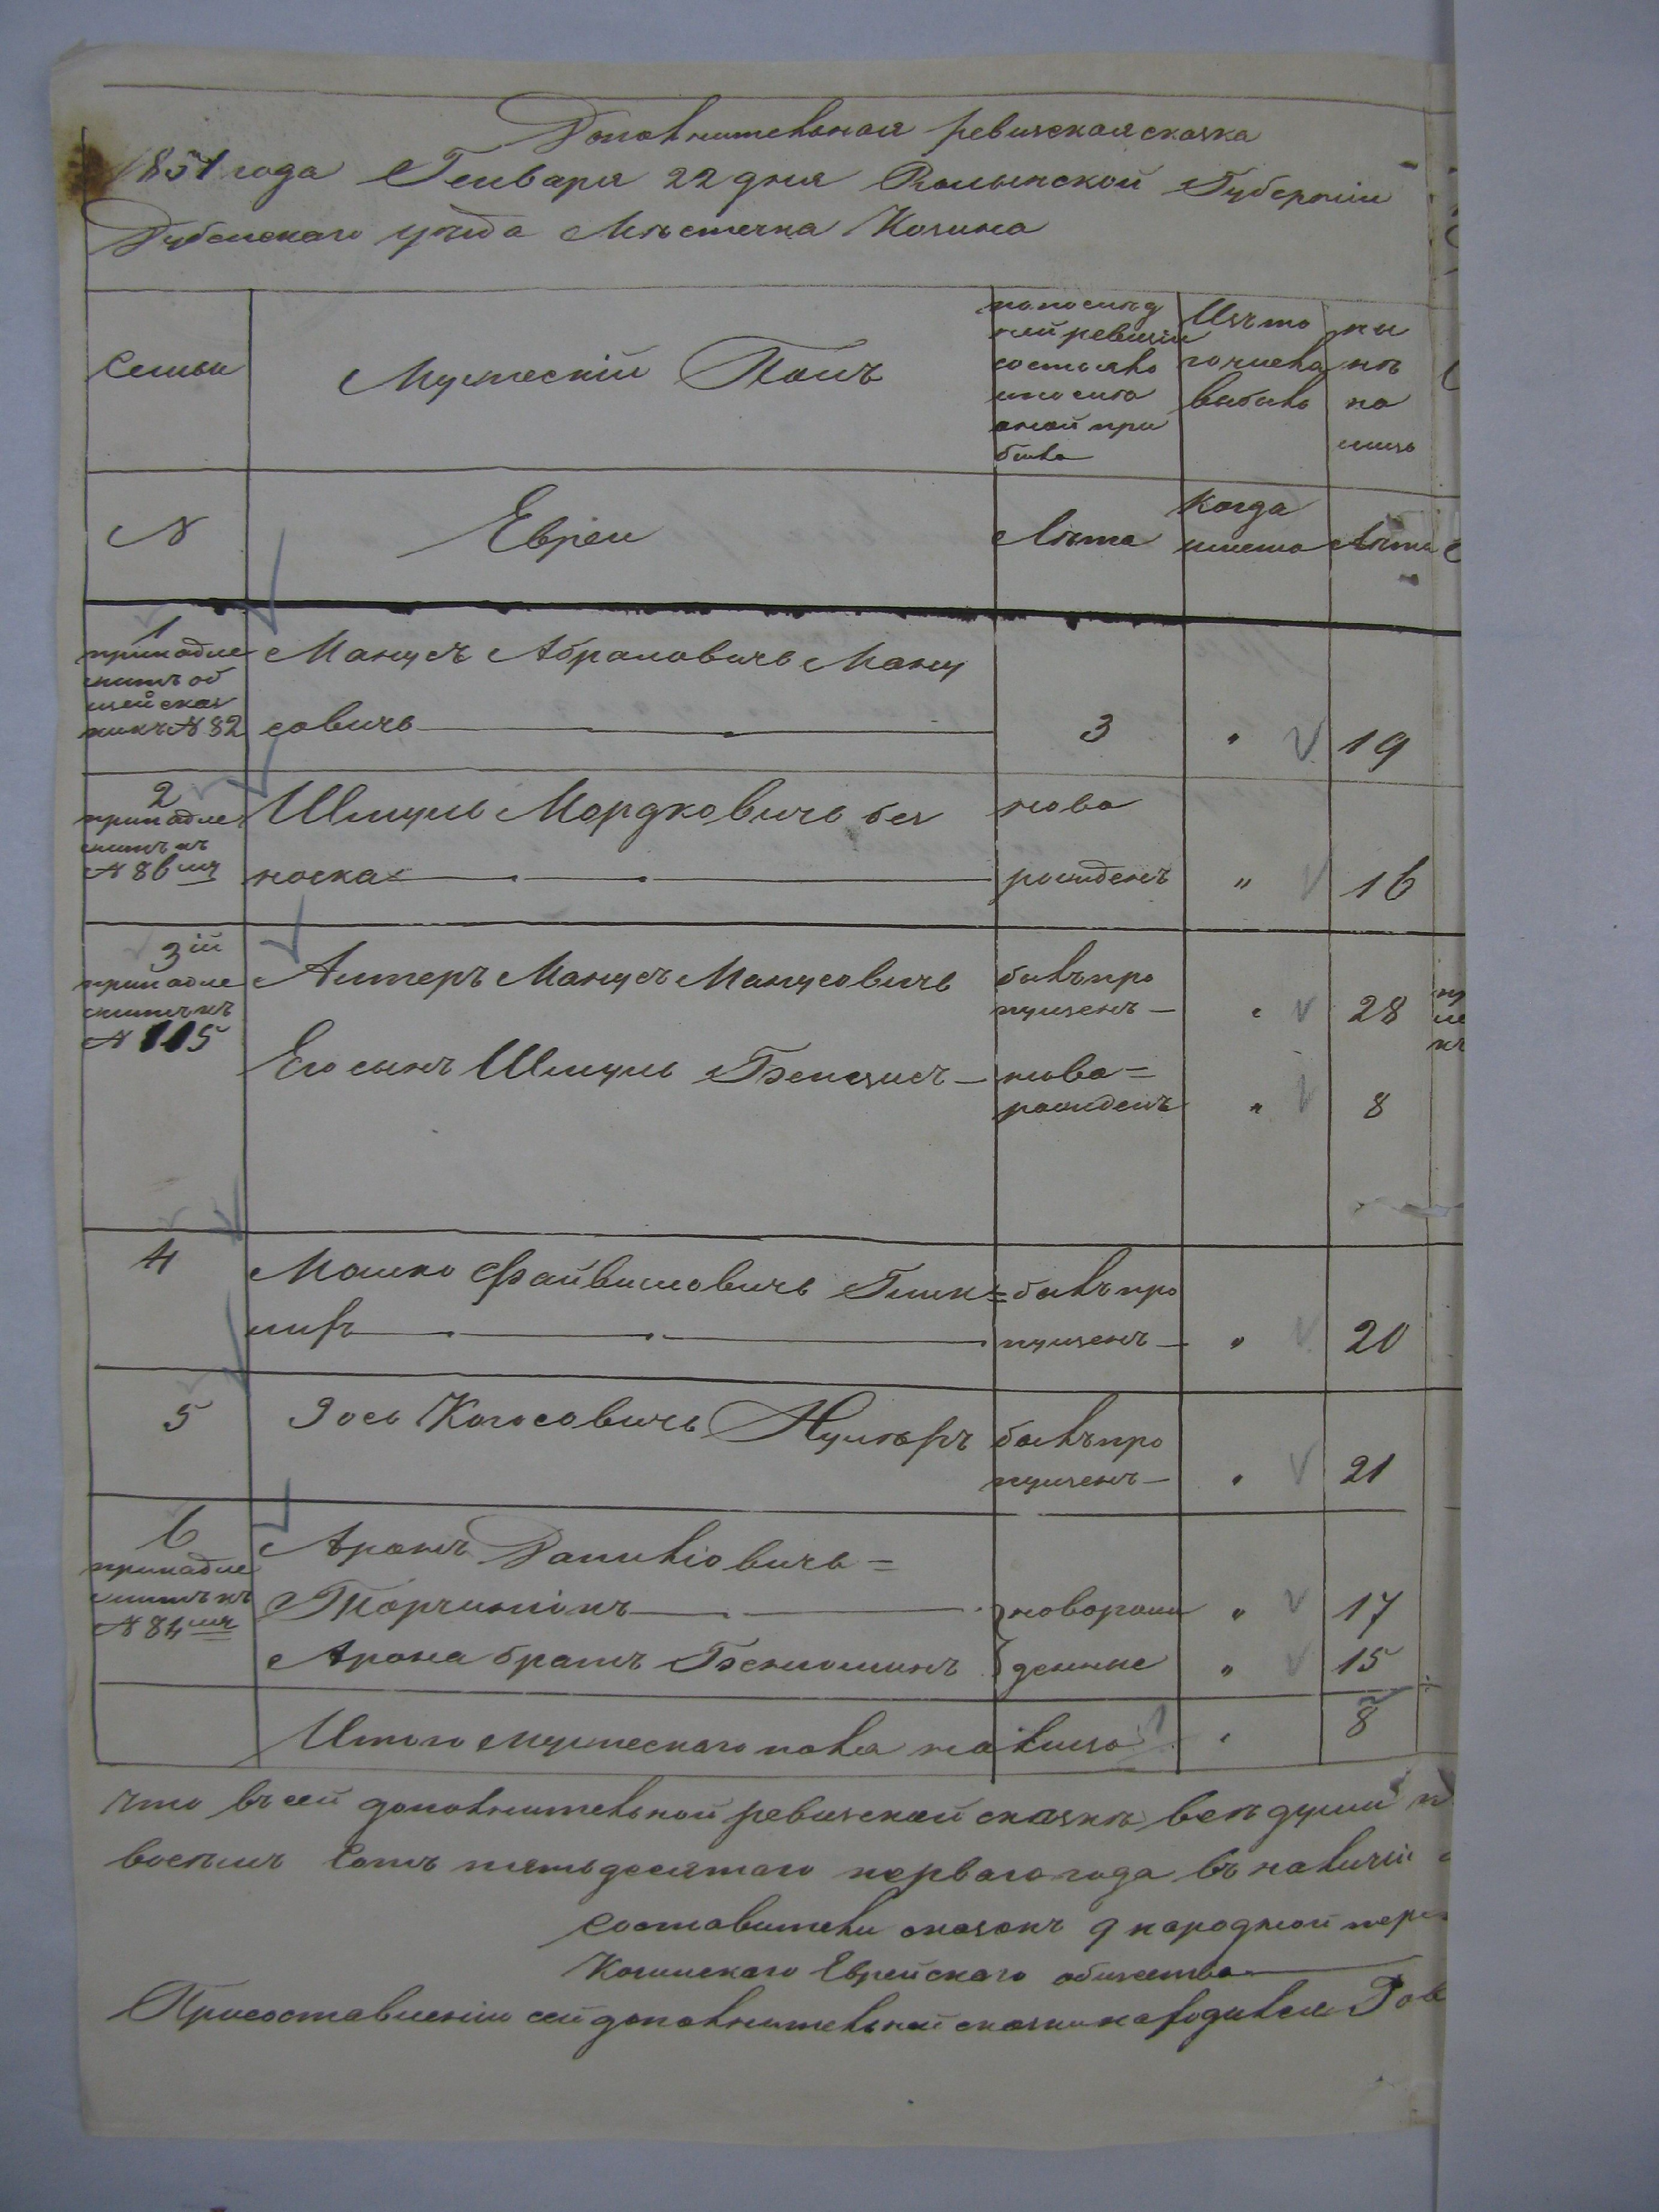 Дополнительная ревизская сказка
1851 года Генваря 22 дня Волынской Губернии
Дубенского уезда Мѣстечка Козина
Семьи
Мужескій Полъ
по послѣд
ней ревизіи
состояло
и после
оной при
было
Изъ то
го числа
выбыло
ны
нѣ
на
лицо
N
Евреи
Лѣта
Когда
именно
Лѣта
1
принадле
житъ об
щей сказ
N 82
Манусъ Абрамовичъ Ману
совичъ
3
"
19
2
принадле
житъ къ
N 86му
Шмуль Мордковичъ без
носка
ново
рожденъ
"
16
3ій
принадле
житъ къ
N 115
Алтеръ Манусъ Манусовичъ
былъ про
пущенъ
"
28
Его сынъ Шмуль Бенсисъ
ново=
рожденъ
"
8
4
Мошко Файвишовичъ Глик=
былъ про
пущенъ
"
20
5
Зось Когосовичъ
былъ про
пущенъ
"
21
6
принадле
житъ къ
N 84му
Аронъ Даниліовичъ=
Торчинікъ
новорож
"
17
Арона братъ Беніоминъ
денные
"
15
Итого мужескаго пола на лицо
"
8
что въ сей дополнительной ревизской сказкѣ всѣ души
восемь сотъ пятьдесятаго перваго года въ наличіи
Составители сказокъ 9 народной пере
Козинскаго Еврейскаго общества
При составленіи сей дополнительной сказки находился